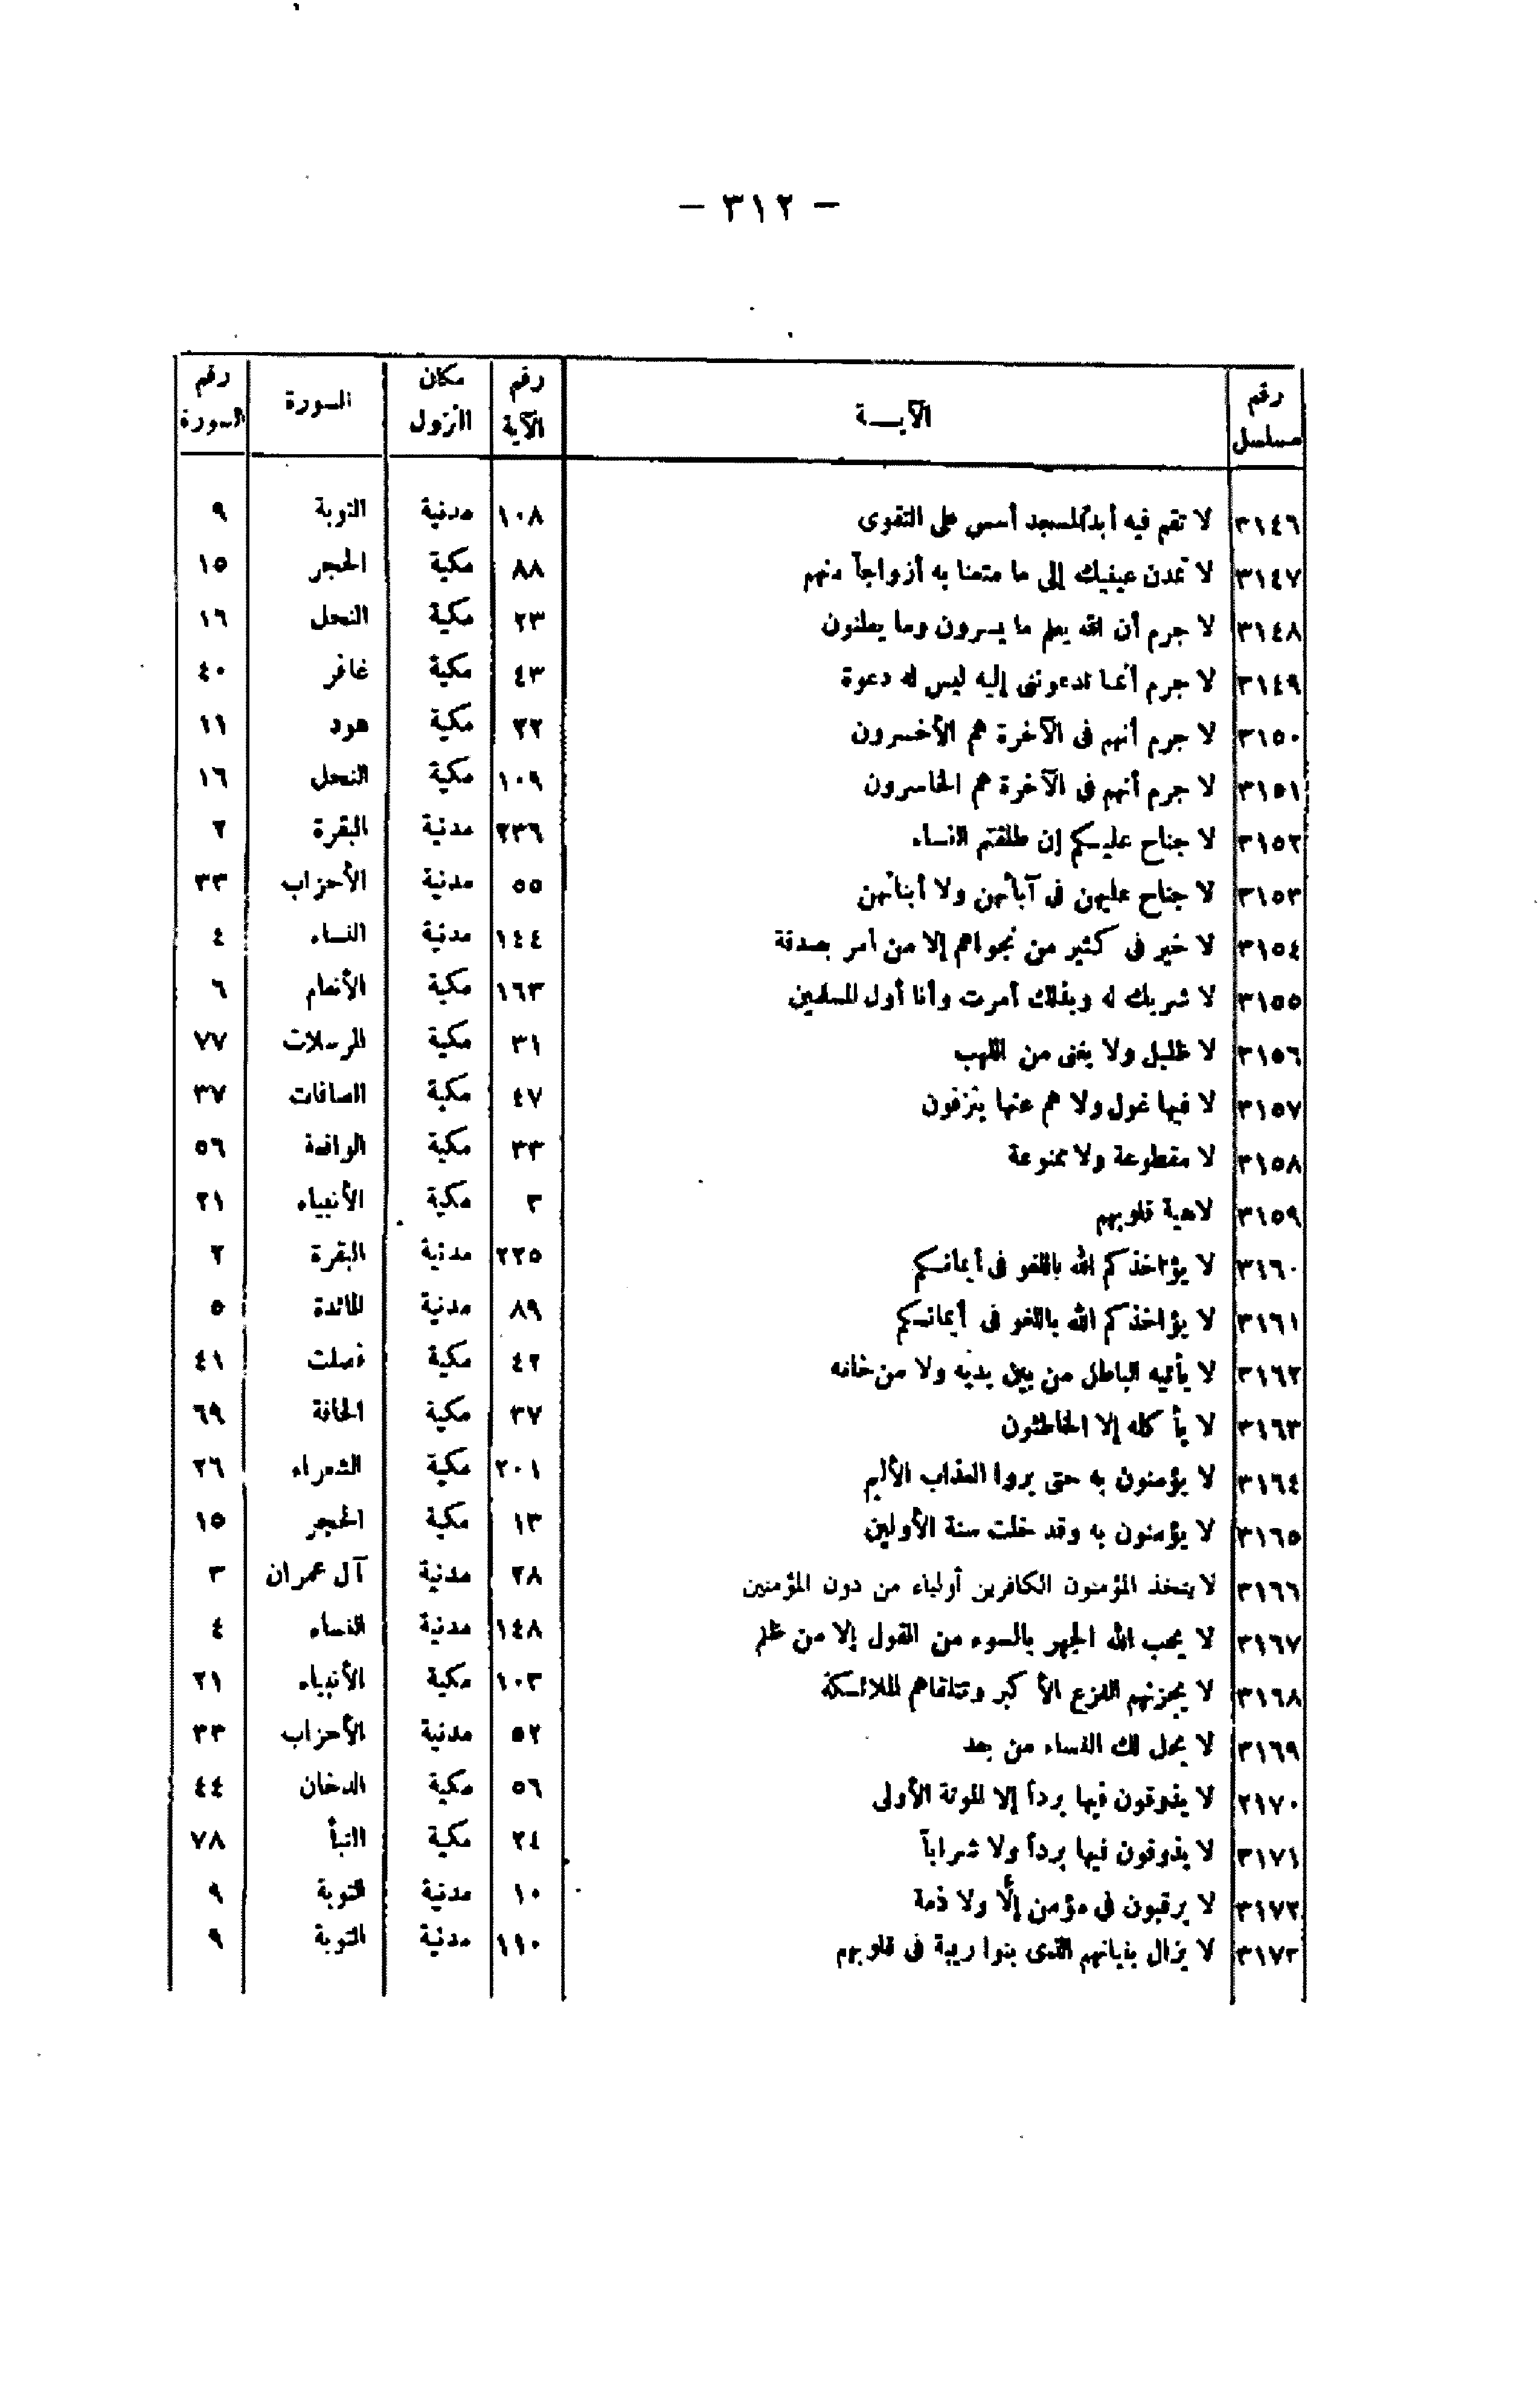 — ٣١٢ —
رقم مسلسل الآيـــة رقم الآية مكان النزول السورة رقم السورة
٣١٤٦ لا تقم فيه أبداً لمسجد أسس على التقوى ١٠٨ مدنية التوبة ٩
٣١٤٧ لا تمدن عينيك إلى ما متعنا به أزواجاً منهم ٨٨ مكية الحجر ١٥
٣١٤٨ لا جرم أن الله يعلم ما يسرون وما يعلنون ٢٣ مكية النحل ١٦
٣١٤٩ لا جرم أنما تدعوننى إليه ليس له دعوة ٤٣ مكية غافر ٤٠
٣١٥٠ لا جرم أنهم فى الآخرة هم الأخسرون ٢٢ مكية هود ١١
٣١٥١ لا جرم أنهم فى الآخرة هم الخاسرون ١٠٩ مكية النحل ١٦
٣١٥٢ لا جناح عليكم إن طلقتم النساء ٢٣٦ مدنية البقرة ٢
٣١٥٣ لا جناح عليهن فى آبائهن ولا أبنائهن ٥٥ مدنية الأحزاب ٣٣
٣١٥٤ لا خير فى كثير من نجواهم إلا من أمر بصدقة ١٤٤ مدنية النساء ٤
٣١٥٥ لا شريك له وبذلك أمرت وأنا أول المسلمين ١٦٣ مكية الأنعام ٦
٣١٥٦ لا ظليل ولا يغنى من اللهب ٣١ مكية المرسلات ٧٧
٣١٥٧ لا فيها غول ولا هم عنها ينزفون ٤٧ مكية الصافات ٣٧
٣١٥٨ لا مقطوعة ولا ممنوعة ٣٣ مكية الواقعة ٥٦
٣١٥٩ لاهية قلوبهم ٣ مكية الأنبياء ٢١
٣١٦٠ لا يؤاخذكم الله باللغو فى أيمانكم ٢٢٥ مدنية البقرة ٢
٣١٦١ لا يؤاخذكم الله باللغو فى أيمانكم ٨٩ مدنية المائدة ٥
٣١٦٢ لا يأتيه الباطل من بين يديه ولا من خلفه ٤٢ مكية فصلت ٤١
٣١٦٣ لا يأكله إلا الخاطئون ٣٧ مكية الحاقة ٦٩
٣١٦٤ لا يؤمنون به حتى يروا العذاب الأليم ٢٠١ مكية الشعراء ٢٦
٣١٦٥ لا يؤمنون به وقد خلت سنة الأولين ١٣ مكية الحجر ١٥
٣١٦٦ لا يتخذ المؤمنون الكافرين أولياء من دون المؤمنين ٢٨ مدنية آل عمران ٣
٣١٦٧ لا يحب الله الجهر بالسوء من القول إلا من ظلم ١٤٨ مدنية النساء ٤
٣١٦٨ لا يحزنهم الفزع الأكبر وتتلقاهم الملائكة ١٠٣ مكية الأنبياء ٢١
٣١٦٩ لا يحل لك النساء من بعد ٥٢ مدنية الأحزاب ٣٣
٣١٧٠ لا يذوقون فيها برداً إلا الموتة الأولى ٥٦ مكية الدخان ٤٤
٣١٧١ لا يذوقون فيها برداً ولا شراباً ٢٤ مكية النبأ ٧٨
٣١٧٢ لا يرقبون فى مؤمن إلًّا ولا ذمة ١٠ مدنية التوبة ٩
٣١٧٣ لا يزال بنيانهم الذى بنوا ريبة فى قلوبهم ١١٠ مدنية التوبة ٩